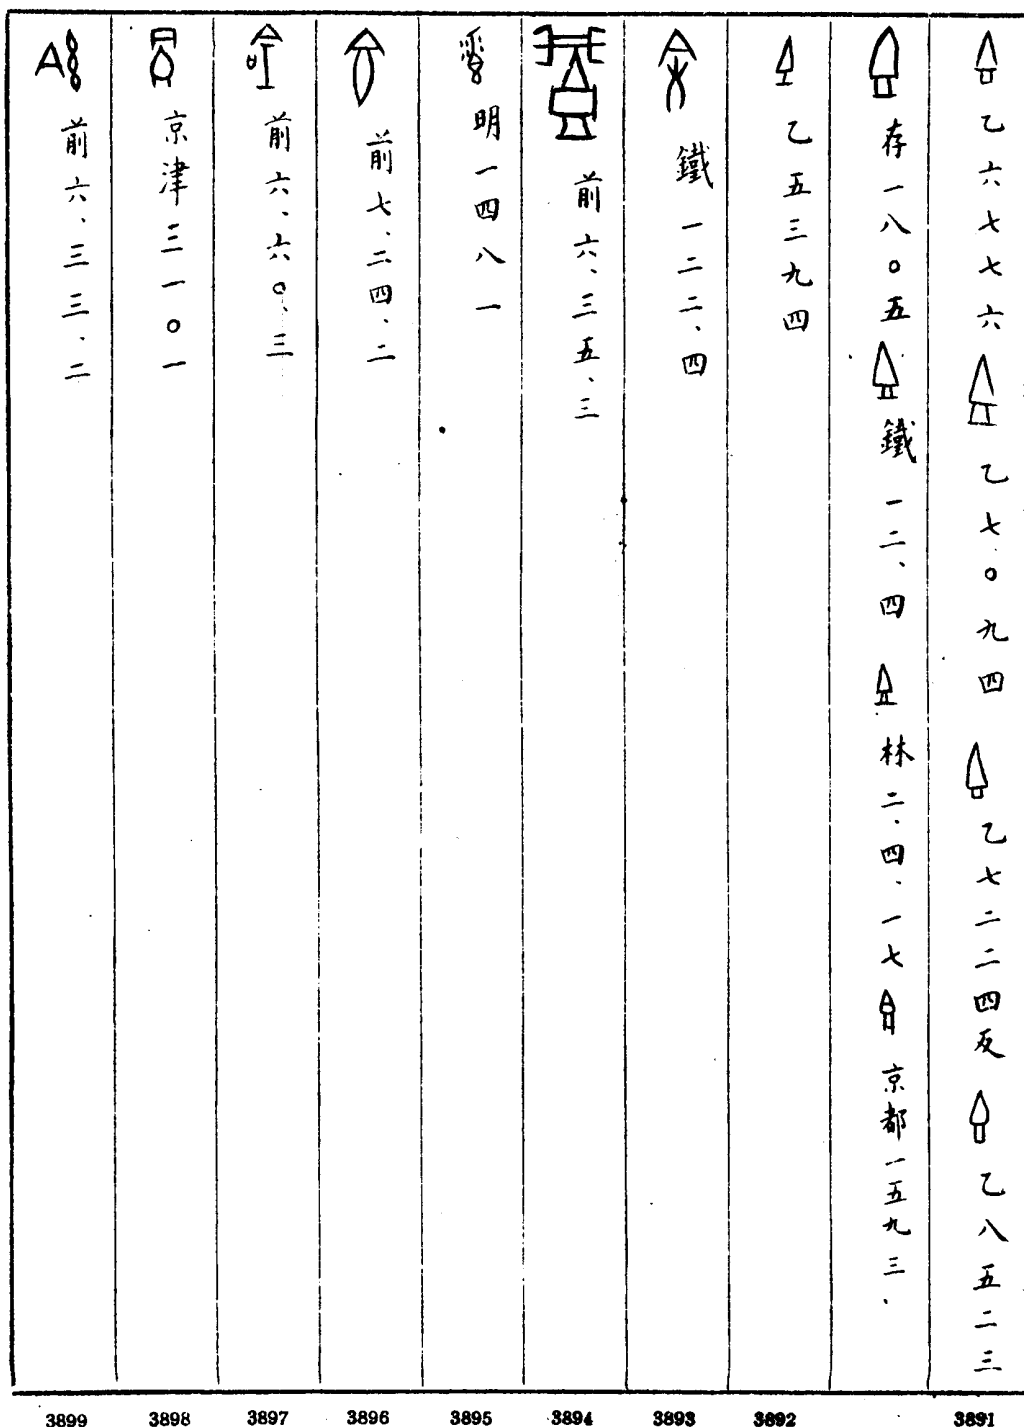 乙六七七六 乙七〇九四 乙七二二四反 乙八五二三
存一八〇五 鐵一二、四 林二、四、一七 京都一五九三、
乙五三九四
鐵一二二、四
前六、三五、三
明一四八一
前七、二四、二
前六、六〇、三
京津三一〇一
前六、三三、二
3899 3898 3897 3896 3895 3894 3893 3892 3891